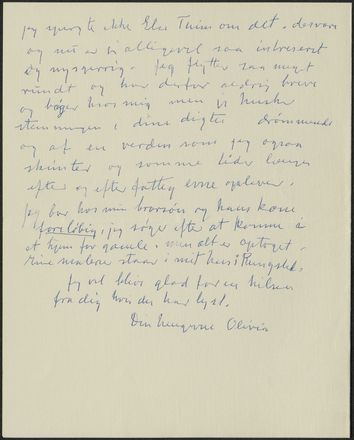 jeg spurgte ikke Else Tuxen om det. desværre
og nu er vi alligevel saa interesseret
og nysgerrig. Jeg flytter saa meget
rundt og har derfor aldrig breve
og bøger hos mig men jeg husker
stemningen i dine digte drømmende
og af en verden som jeg ogsaa
skimter og somme tider længes
efter og efter fattig evne oplever.
Jeg bor hos min brorsøn og hans kone
foreløbig, jeg søger efter at komme i
et hjem for gamle. men alt er optaget.
Mine malere staar i mit hus i Rungsted.
Jeg vil blive glad for en hilsen
fra dig hvis du har lyst.
Din hengivne Olivia